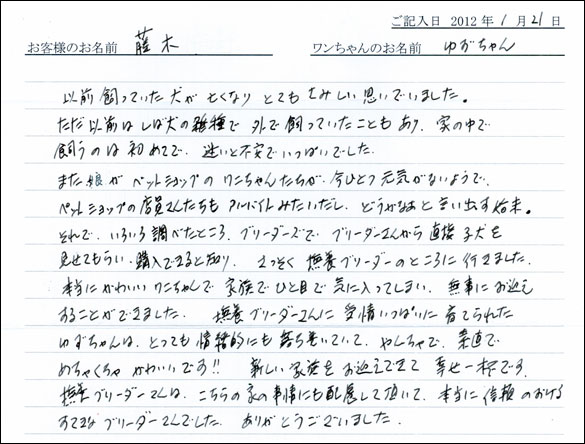 ご記入日 2012年 1月 21日
お客様のお名前 藤木 ワンちゃんのお名前 ゆずちゃん
以前飼っていた犬が亡くなり とてもさみしい思いでいました。
ただ以前はしば犬の雑種で 外で飼っていたこともあり、家の中で
飼うのは初めてで、迷いと不安でいっぱいでした。
また娘が ペットショップの ワンちゃんたちが、今ひとつ元気がないようで、
ペットショップの店員さんたちも アルバイトみたいだし、どうかなあと言い出す始末。
それで、いろいろ調べたところ、ブリーダーズで ブリーダーさんから直接子犬を
見せてもらい、購入できると知り、さっそく 撫養ブリーダーのところに行きました。
本当にかわいいワンちゃんで 家族でひと目で気に入ってしまい、無事にお迎え
することができました。 撫養ブリーダーさんに愛情いっぱいに育てられた
ゆずちゃんは、とっても情緒的にも落ち着いていて、やんちゃで、素直で
めちゃくちゃかわいいです!! 新しい家族をお迎えできて 幸せ一杯です。
撫養ブリーダーさんは、こちらの家の事情にも配慮して頂いて、本当に信頼のおける
すてきなブリーダーさんでした。ありがとうございました。